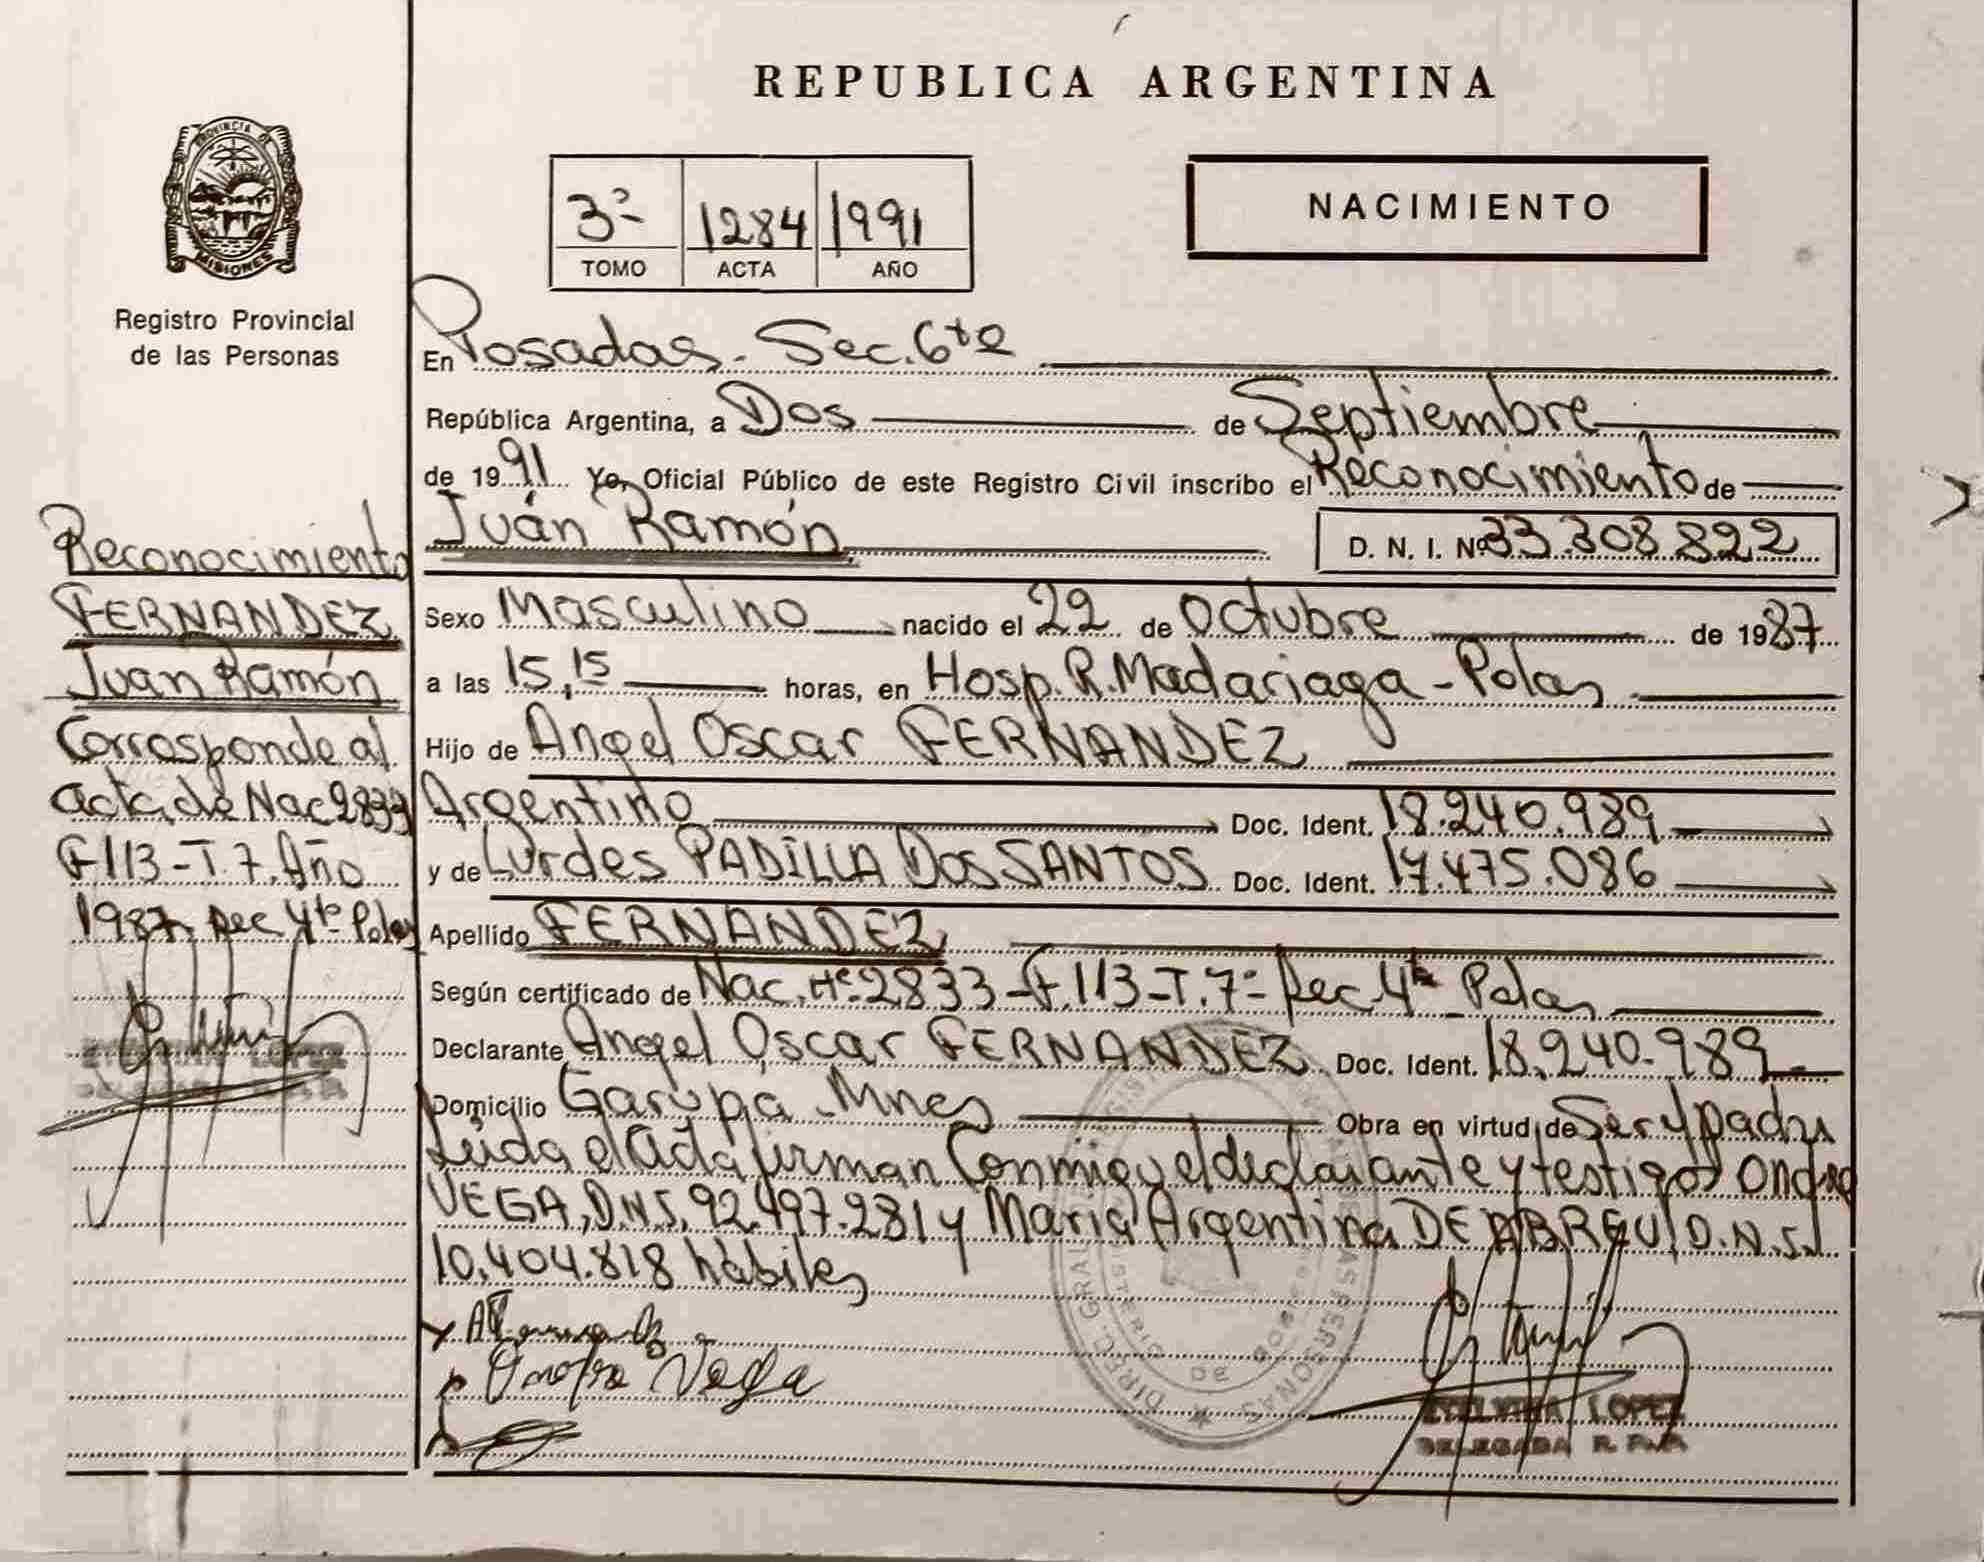 REPUBLICA ARGENTINA
PROVINCIA DE
MISIONES
Registro Provincial
de las Personas
3º 1284 1991
TOMO ACTA AÑO
NACIMIENTO
En Posadas. Sec. 6ta
República Argentina, a Dos de Septiembre
de 1991 Yo, Oficial Público de este Registro Civil inscribo el Reconocimiento de
Juán Ramón D. N. I. Nº 33.308.822
Sexo Masculino nacido el 22 de Octubre de 1987
a las 15,15 horas, en Hosp. R. Madariaga - Pdas
Hijo de Angel Oscar FERNANDEZ
Argentino Doc. Ident. 18.240.989
y de Lurdes PADILLA DOS SANTOS Doc. Ident. 17.475.086
Apellido FERNANDEZ
Según certificado de Nac. Nº 2833 - F. 113 - T. 7º - Sec. 4ta Pdas
Declarante Angel Oscar FERNANDEZ Doc. Ident. 18.240.989
Domicilio Garupa Mnes Obra en virtud de Ser y padre
Leida el Acta firman Conmigo el declarante y testigos
VEGA, D.N.I. 92.497.281 y Maria Argentina DE ABREU D.N.I.
10.404.818 hábiles
Vega
ETELVINA LOPEZ
DELEGADA R. P. P.
Reconocimiento
FERNANDEZ
Juan Ramón
Corresponde al
acta de Nac 2833
F 113 - T. 7. Año
1987 Sec 4ta Pdas
LOPEZ